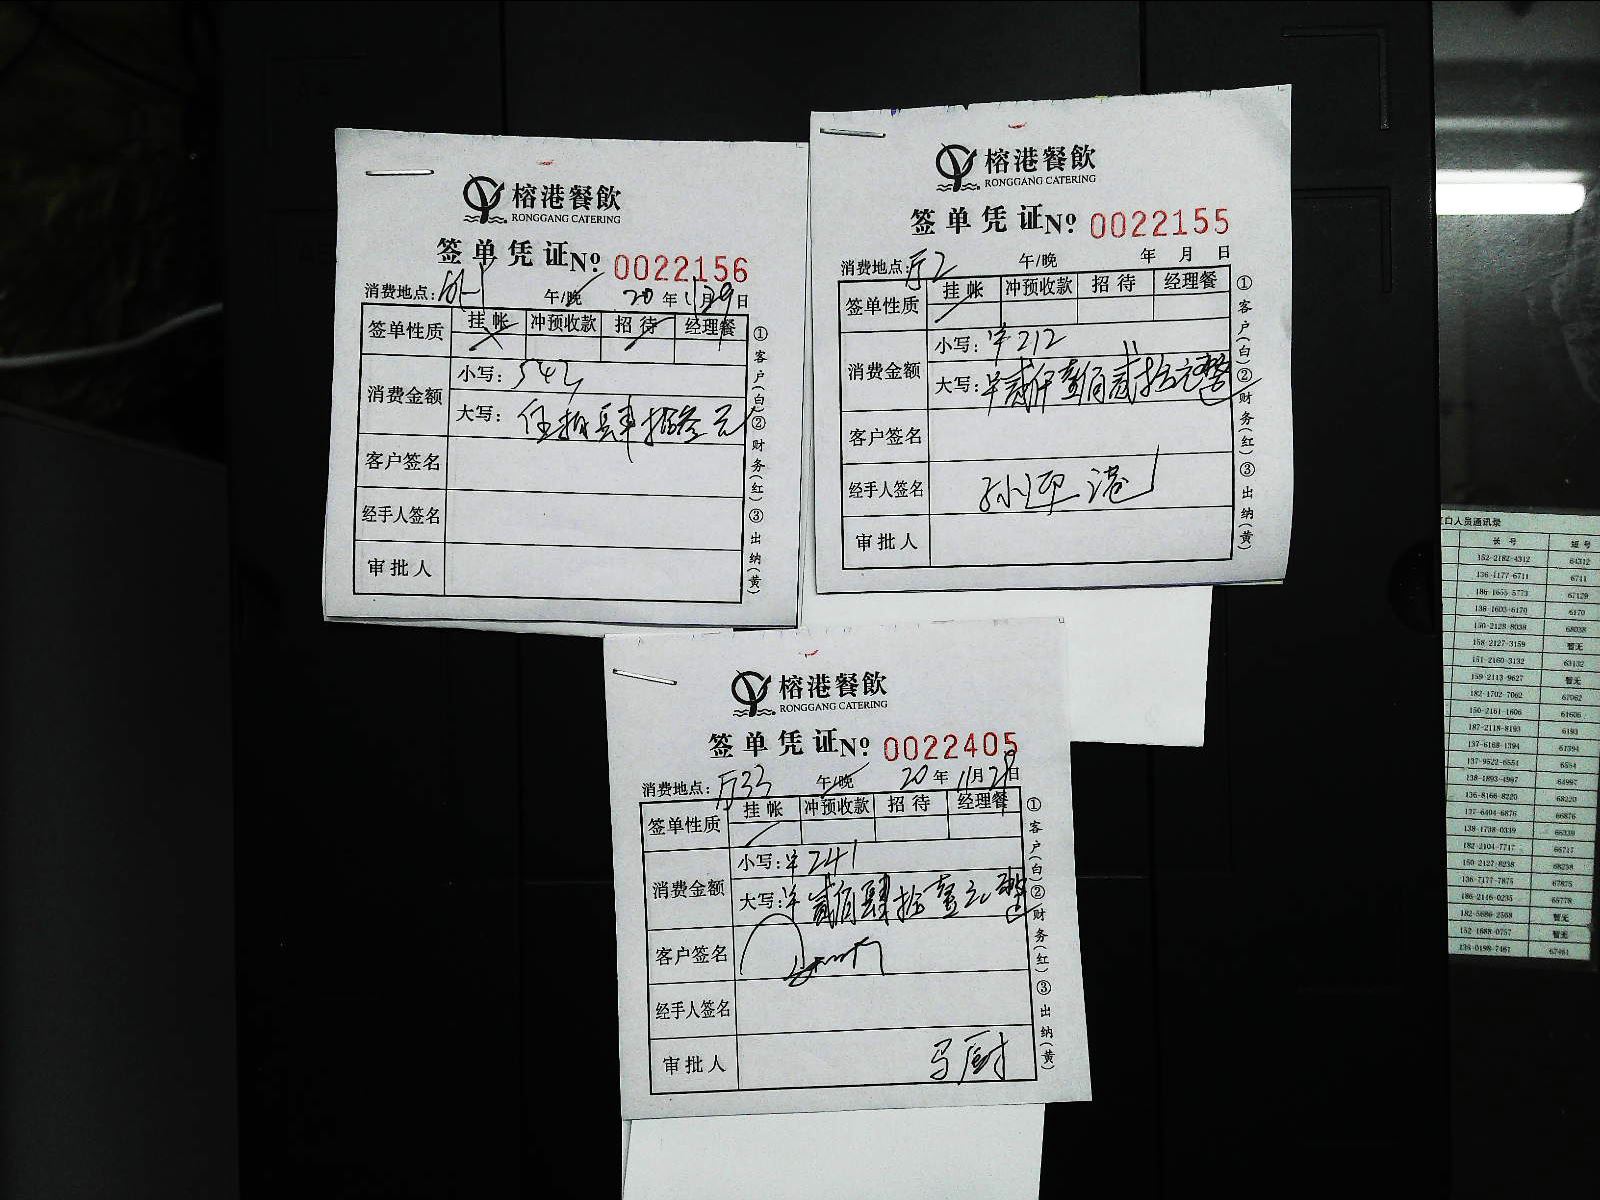 榕港餐飲
RONGGANG CATERING
签单凭证 № 0022156
消费地点: 午/晚 20年11月29日
签单性质 挂帐 冲预收款 招待 经理餐
消费金额 小写: 543
大写: 伍佰肆拾叁元
客户签名
经手人签名
审批人
①客户(白)②财务(红)③出纳(黄)
榕港餐飲
RONGGANG CATERING
签单凭证 № 0022155
消费地点: 厅2 午/晚 年 月 日
签单性质 挂帐 冲预收款 招待 经理餐
消费金额 小写: ¥212
大写: 元整
客户签名
经手人签名
审批人
①客户(白)②财务(红)③出纳(黄)
榕港餐飲
RONGGANG CATERING
签单凭证 № 0022405
消费地点: 厅33 午/晚 20年11月2日
签单性质 挂帐 冲预收款 招待 经理餐
消费金额 小写: ¥241
大写: ¥贰佰肆拾壹元整
客户签名
经手人签名
审批人 马厨
①客户(白)②财务(红)③出纳(黄)
口人员通讯录
长号 短号
152-2182-4312 64312
136-1177-6711 6711
186-1655-5773
138-1603-6170 6170
150-2128-8038 68038
158-2127-3159 暂无
151-2160-3132 63132
159-2113-9627 暂无
182-1702-7062 67062
150-2161-1606 61606
187-2118-8193 6193
137-6168-1394 61394
137-9522-6554 6554
138-1893-4997 64997
136-8166-8220 68220
137-6404-6876 66876
138-1738-0339
182-2104-7717
150-2127-8238 68238
136-7177-7875 67875
186-2146-0235
182-5686-2568 暂无
152-1688-0757 暂无
136-0198-7461 67461